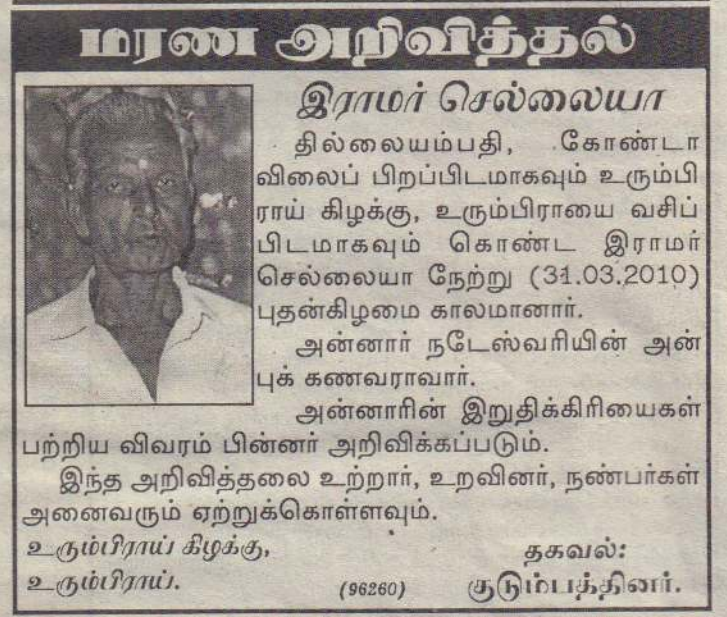 மரண அறிவித்தல்
இராமர் செல்லையா
தில்லையம்பதி, கோண்டா
விலைப் பிறப்பிடமாகவும் உரும்பி
ராய் கிழக்கு, உரும்பிராயை வசிப்
பிடமாகவும் கொண்ட இராமர்
செல்லையா நேற்று (31.03.2010)
புதன்கிழமை காலமானார்.
அன்னார் நடேஸ்வரியின் அன்
புக் கணவராவார்.
அன்னாரின் இறுதிக்கிரியைகள்
பற்றிய விவரம் பின்னர் அறிவிக்கப்படும்.
இந்த அறிவித்தலை உற்றார், உறவினர், நண்பர்கள்
அனைவரும் ஏற்றுக்கொள்ளவும்.
உரும்பிராய் கிழக்கு, தகவல்:
உரும்பிராய். (96260) குடும்பத்தினர்.